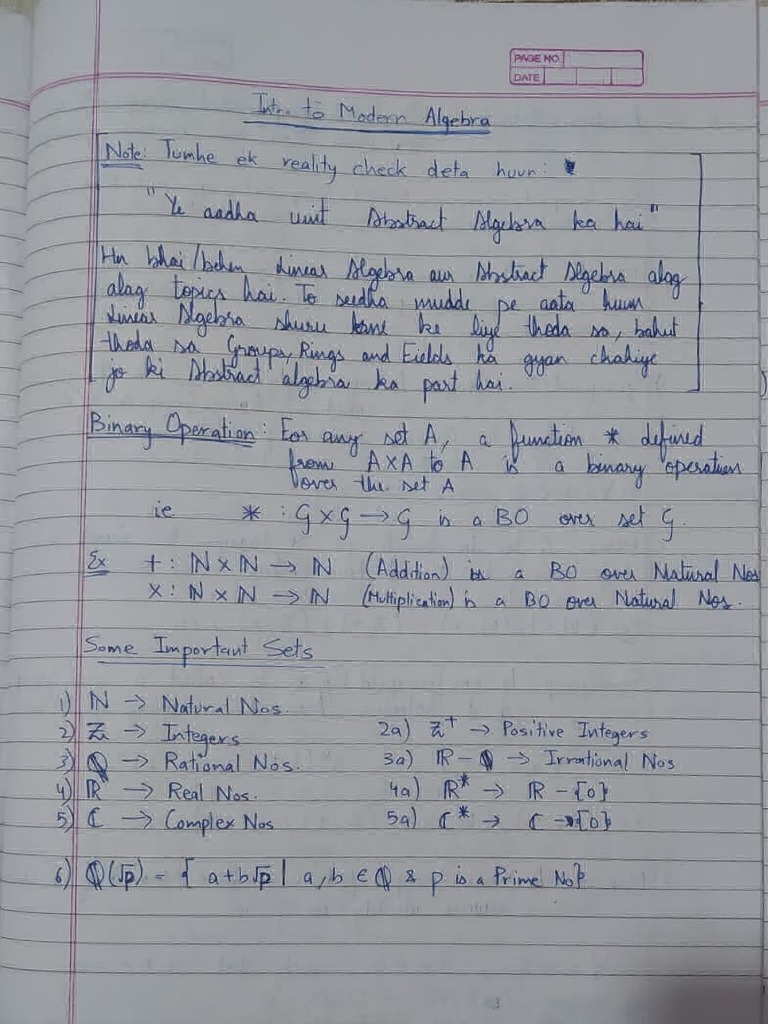 PAGE NO.
DATE
Intro to Modern Algebra
Note: Tumhe ek reality check deta huun:
"Ye aadha unit Abstract Algebra ka hai"
Hn bhai/behen Linear Algebra aur Abstract Algebra alag
alag topics hai. To seedha mudde pe aata huun
Linear Algebra shuru karne ke liye thoda sa, bahut
thoda sa Groups, Rings and Fields ka gyan chahiye
jo ki Abstract algebra ka part hai.
Binary Operation: For any set A, a function * defined
from A×A to A is a binary operation
over the set A
ie * : G×G → G is a BO over set G.
Ex + : ℕ×ℕ → ℕ (Addition) is a BO over Natural Nos
× : ℕ×ℕ → ℕ (Multiplication) is a BO over Natural Nos.
Some Important Sets
1) ℕ → Natural Nos.
2) ℤ → Integers 2a) ℤ⁺ → Positive Integers
3) ℚ → Rational Nos. 3a) ℝ - ℚ → Irrational Nos
4) ℝ → Real Nos. 4a) ℝ* → ℝ - {0}
5) ℂ → Complex Nos 5a) ℂ* → ℂ - {0}
6) ℚ(√p) = { a+b√p | a,b ∈ ℚ & p is a Prime No}